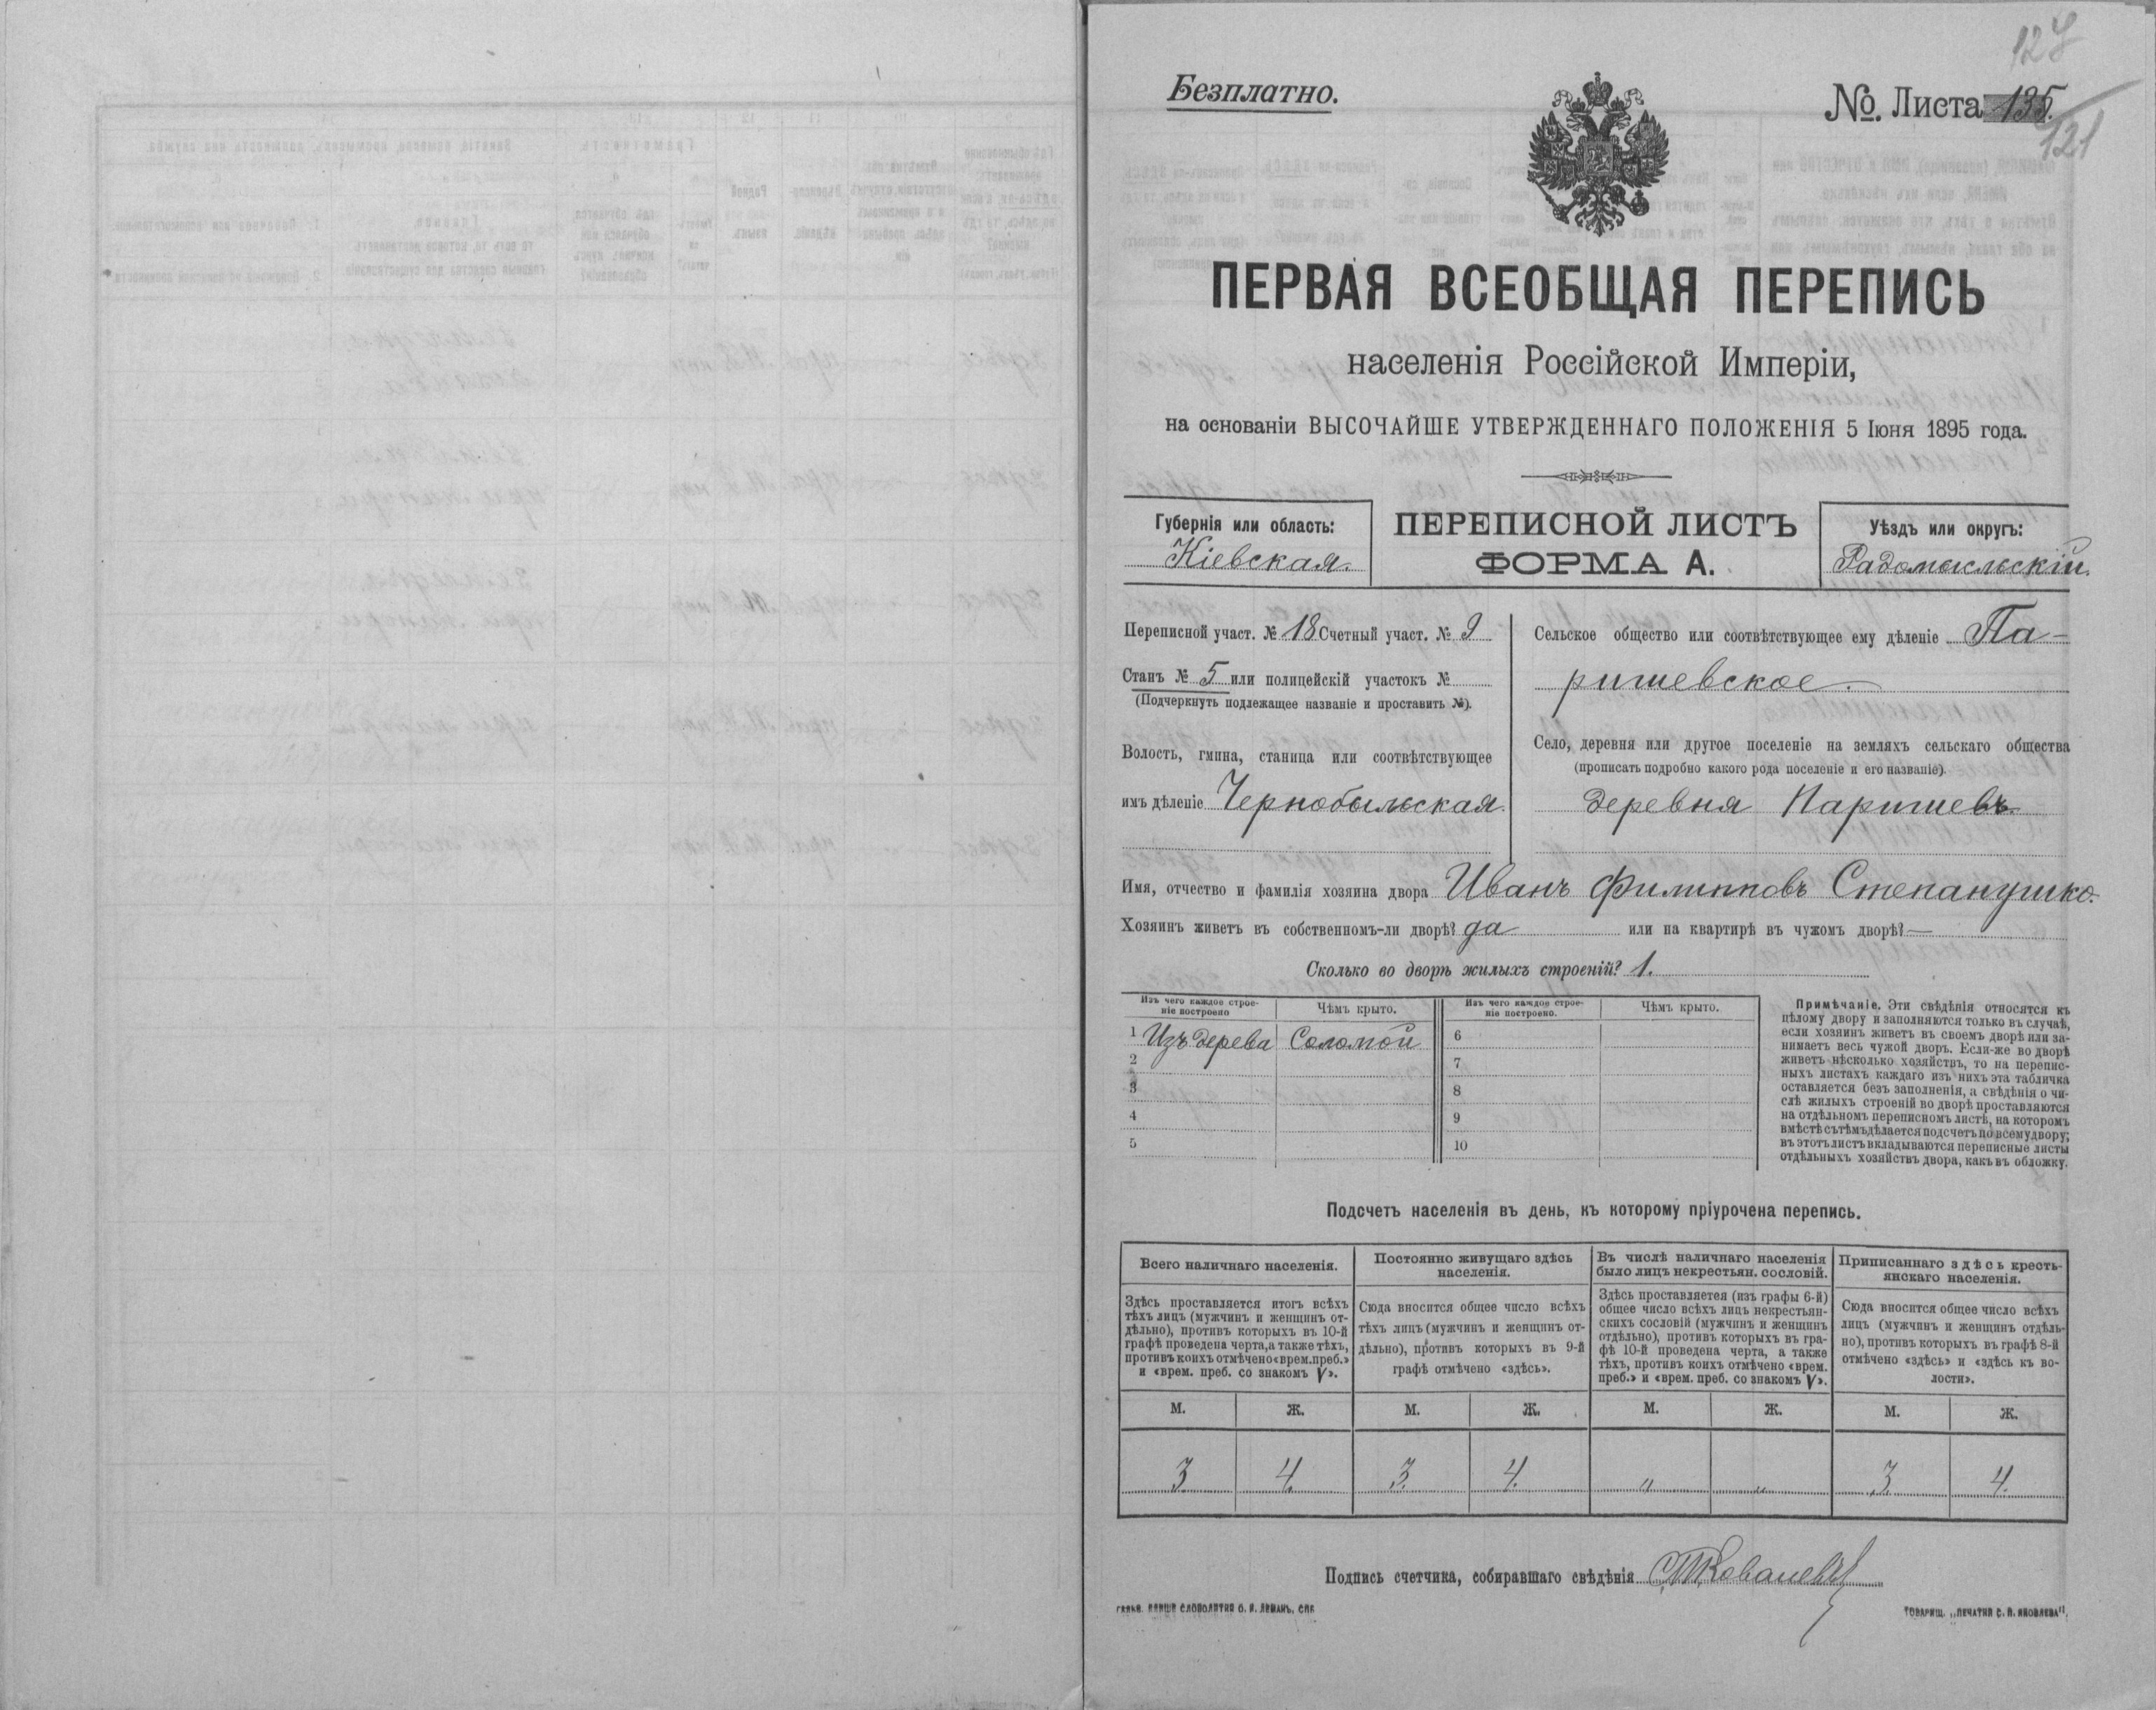 127
Безплатно.
№. Листа 135.
121
ПЕРВАЯ ВСЕОБЩАЯ ПЕРЕПИСЬ
населенія Россійской Имперіи,
на основаніи ВЫСОЧАЙШЕ УТВЕРЖДЕННАГО ПОЛОЖЕНІЯ 5 Іюня 1895 года.
Губернія или область:
Кіевская.
ПЕРЕПИСНОЙ ЛИСТЪ
ФОРМА А.
Уѣздъ или округъ:
Радомысльскій.
Переписной участ. № 18 Счетный участ. № 9
Станъ № 5 или полицейскій участокъ №
(Подчеркнуть подлежащее названіе и проставить №).
Волость, гмина, станица или соотвѣтствующее
имъ дѣленіе Чернобыльская.
Сельское общество или соотвѣтствующее ему дѣленіе Па-
ришевское.
Село, деревня или другое поселеніе на земляхъ сельскаго общества
(прописать подробно какого рода поселеніе и его названіе).
деревня Паришевъ.
Имя, отчество и фамилія хозяина двора Иванъ Филипповъ Степанушко.
Хозяинъ живетъ въ собственномъ-ли дворѣ? да или на квартирѣ въ чужомъ дворѣ? —
Сколько во дворѣ жилыхъ строеній? 1.
Изъ чего каждое строе-
ніе построено
Чѣмъ крыто.
Изъ чего каждое строе-
ніе построено.
Чѣмъ крыто.
1 Изъ дерева Соломой 6
2 7
3 8
4 9
5 10
Примѣчаніе. Эти свѣдѣнія относятся къ
цѣлому двору и заполняются только въ случаѣ,
если хозяинъ живетъ въ своемъ дворѣ или за-
нимаетъ весь чужой дворъ. Если-же во дворѣ
живетъ нѣсколько хозяйствъ, то на перепис-
ныхъ листахъ каждаго изъ нихъ эта табличка
оставляется безъ заполненія, а свѣдѣнія о чи-
слѣ жилыхъ строеній во дворѣ проставляются
на отдѣльномъ переписномъ листѣ, на которомъ
вмѣстѣ съ тѣмъ дѣлается подсчетъ по всему двору;
въ этотъ листъ вкладываются переписные листы
отдѣльныхъ хозяйствъ двора, какъ въ обложку.
Подсчетъ населенія въ день, къ которому пріурочена перепись.
Всего наличнаго населенія.
Здѣсь проставляется итогъ всѣхъ
тѣхъ лицъ (мужчинъ и женщинъ от-
дѣльно), противъ которыхъ въ 10-й
графѣ проведена черта, а также тѣхъ,
противъ коихъ отмѣчено «врем. преб.»
и «врем. преб. со знакомъ V».
Постоянно живущаго здѣсь
населенія.
Сюда вносится общее число всѣхъ
тѣхъ лицъ (мужчинъ и женщинъ от-
дѣльно), противъ которыхъ въ 9-й
графѣ отмѣчено «здѣсь».
Въ числѣ наличнаго населенія
было лицъ некрестьян. сословій.
Здѣсь проставляется (изъ графы 6-й)
общее число всѣхъ лицъ некрестьян-
скихъ сословій (мужчинъ и женщинъ
отдѣльно), противъ которыхъ въ гра-
фѣ 10-й проведена черта, а также
тѣхъ, противъ коихъ отмѣчено «врем.
преб.» и «врем. преб. со знакомъ V».
Приписаннаго здѣсь кресть-
янскаго населенія.
Сюда вносится общее число всѣхъ
лицъ (мужчинъ и женщинъ отдѣль-
но), противъ которыхъ въ графѣ 8-й
отмѣчено «здѣсь» и «здѣсь къ во-
лости».
М. Ж. М. Ж. М. Ж. М. Ж.
3 4. 3. 4. „ „ 3. 4.
Подпись счетчика, собиравшаго свѣдѣнія
СЛОВОЛИТНЯ О. И. ЛЕМАНЪ, СПБ
ТОВАРИЩ. „ПЕЧАТНЯ С. П. ЯКОВЛЕВА"